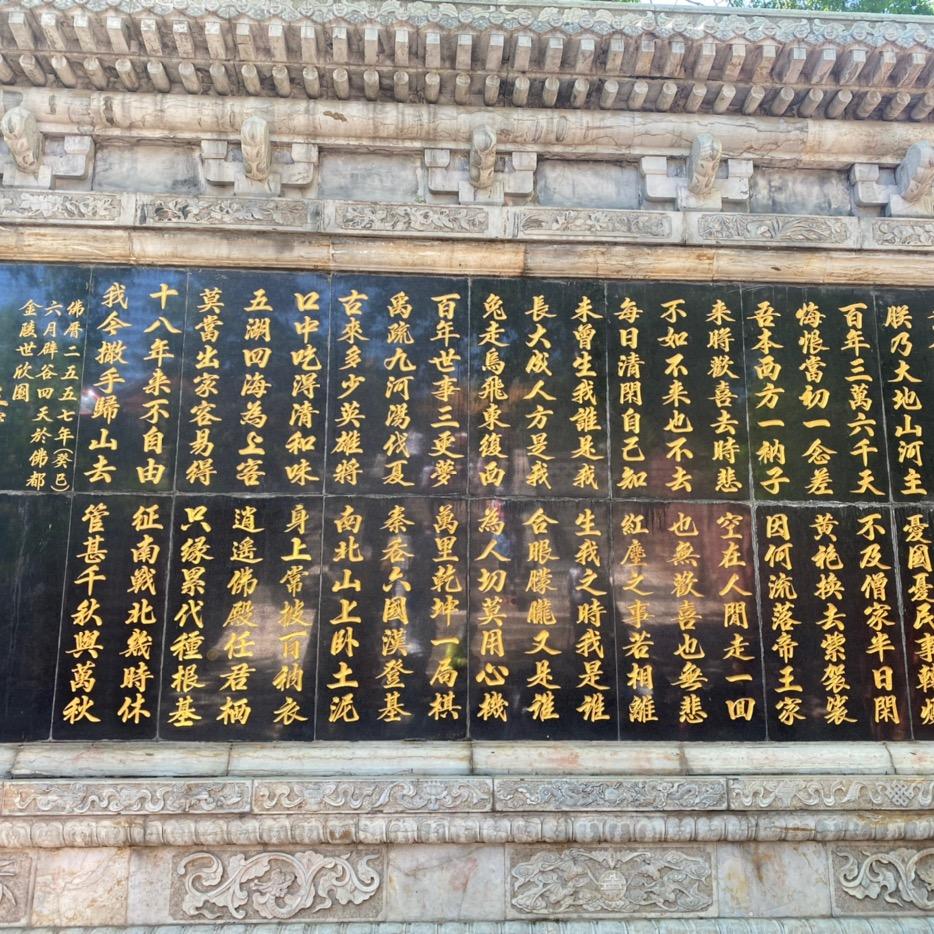 朕乃大地山河主
憂國憂民事轉煩
百年三萬六千天
不及僧家半日閑
悔恨當初一念差
黃袍換去紫袈裟
吾本西方一衲子
因何流落帝王家
來時歡喜去時悲
空在人間走一回
不如不來也不去
也無歡喜也無悲
每日清閑自己知
紅塵之事若相離
未曾生我誰是我
生我之時我是誰
長大成人方是我
合眼朦朧又是誰
兔走烏飛東復西
為人切莫用心機
百年世事三更夢
萬里乾坤一局棋
禹疏九河湯伐夏
秦吞六國漢登基
古來多少英雄將
南北山上卧土泥
口中吃得清和味
身上常披百衲衣
五湖四海為上客
逍遙佛殿任君栖
莫當出家容易得
只緣累代種根基
十八年來不自由
征南戰北幾時休
我今撒手歸山去
管甚千秋與萬秋
佛曆二五五七年(癸巳)
六月辟谷四天於佛都
金陵世欣園